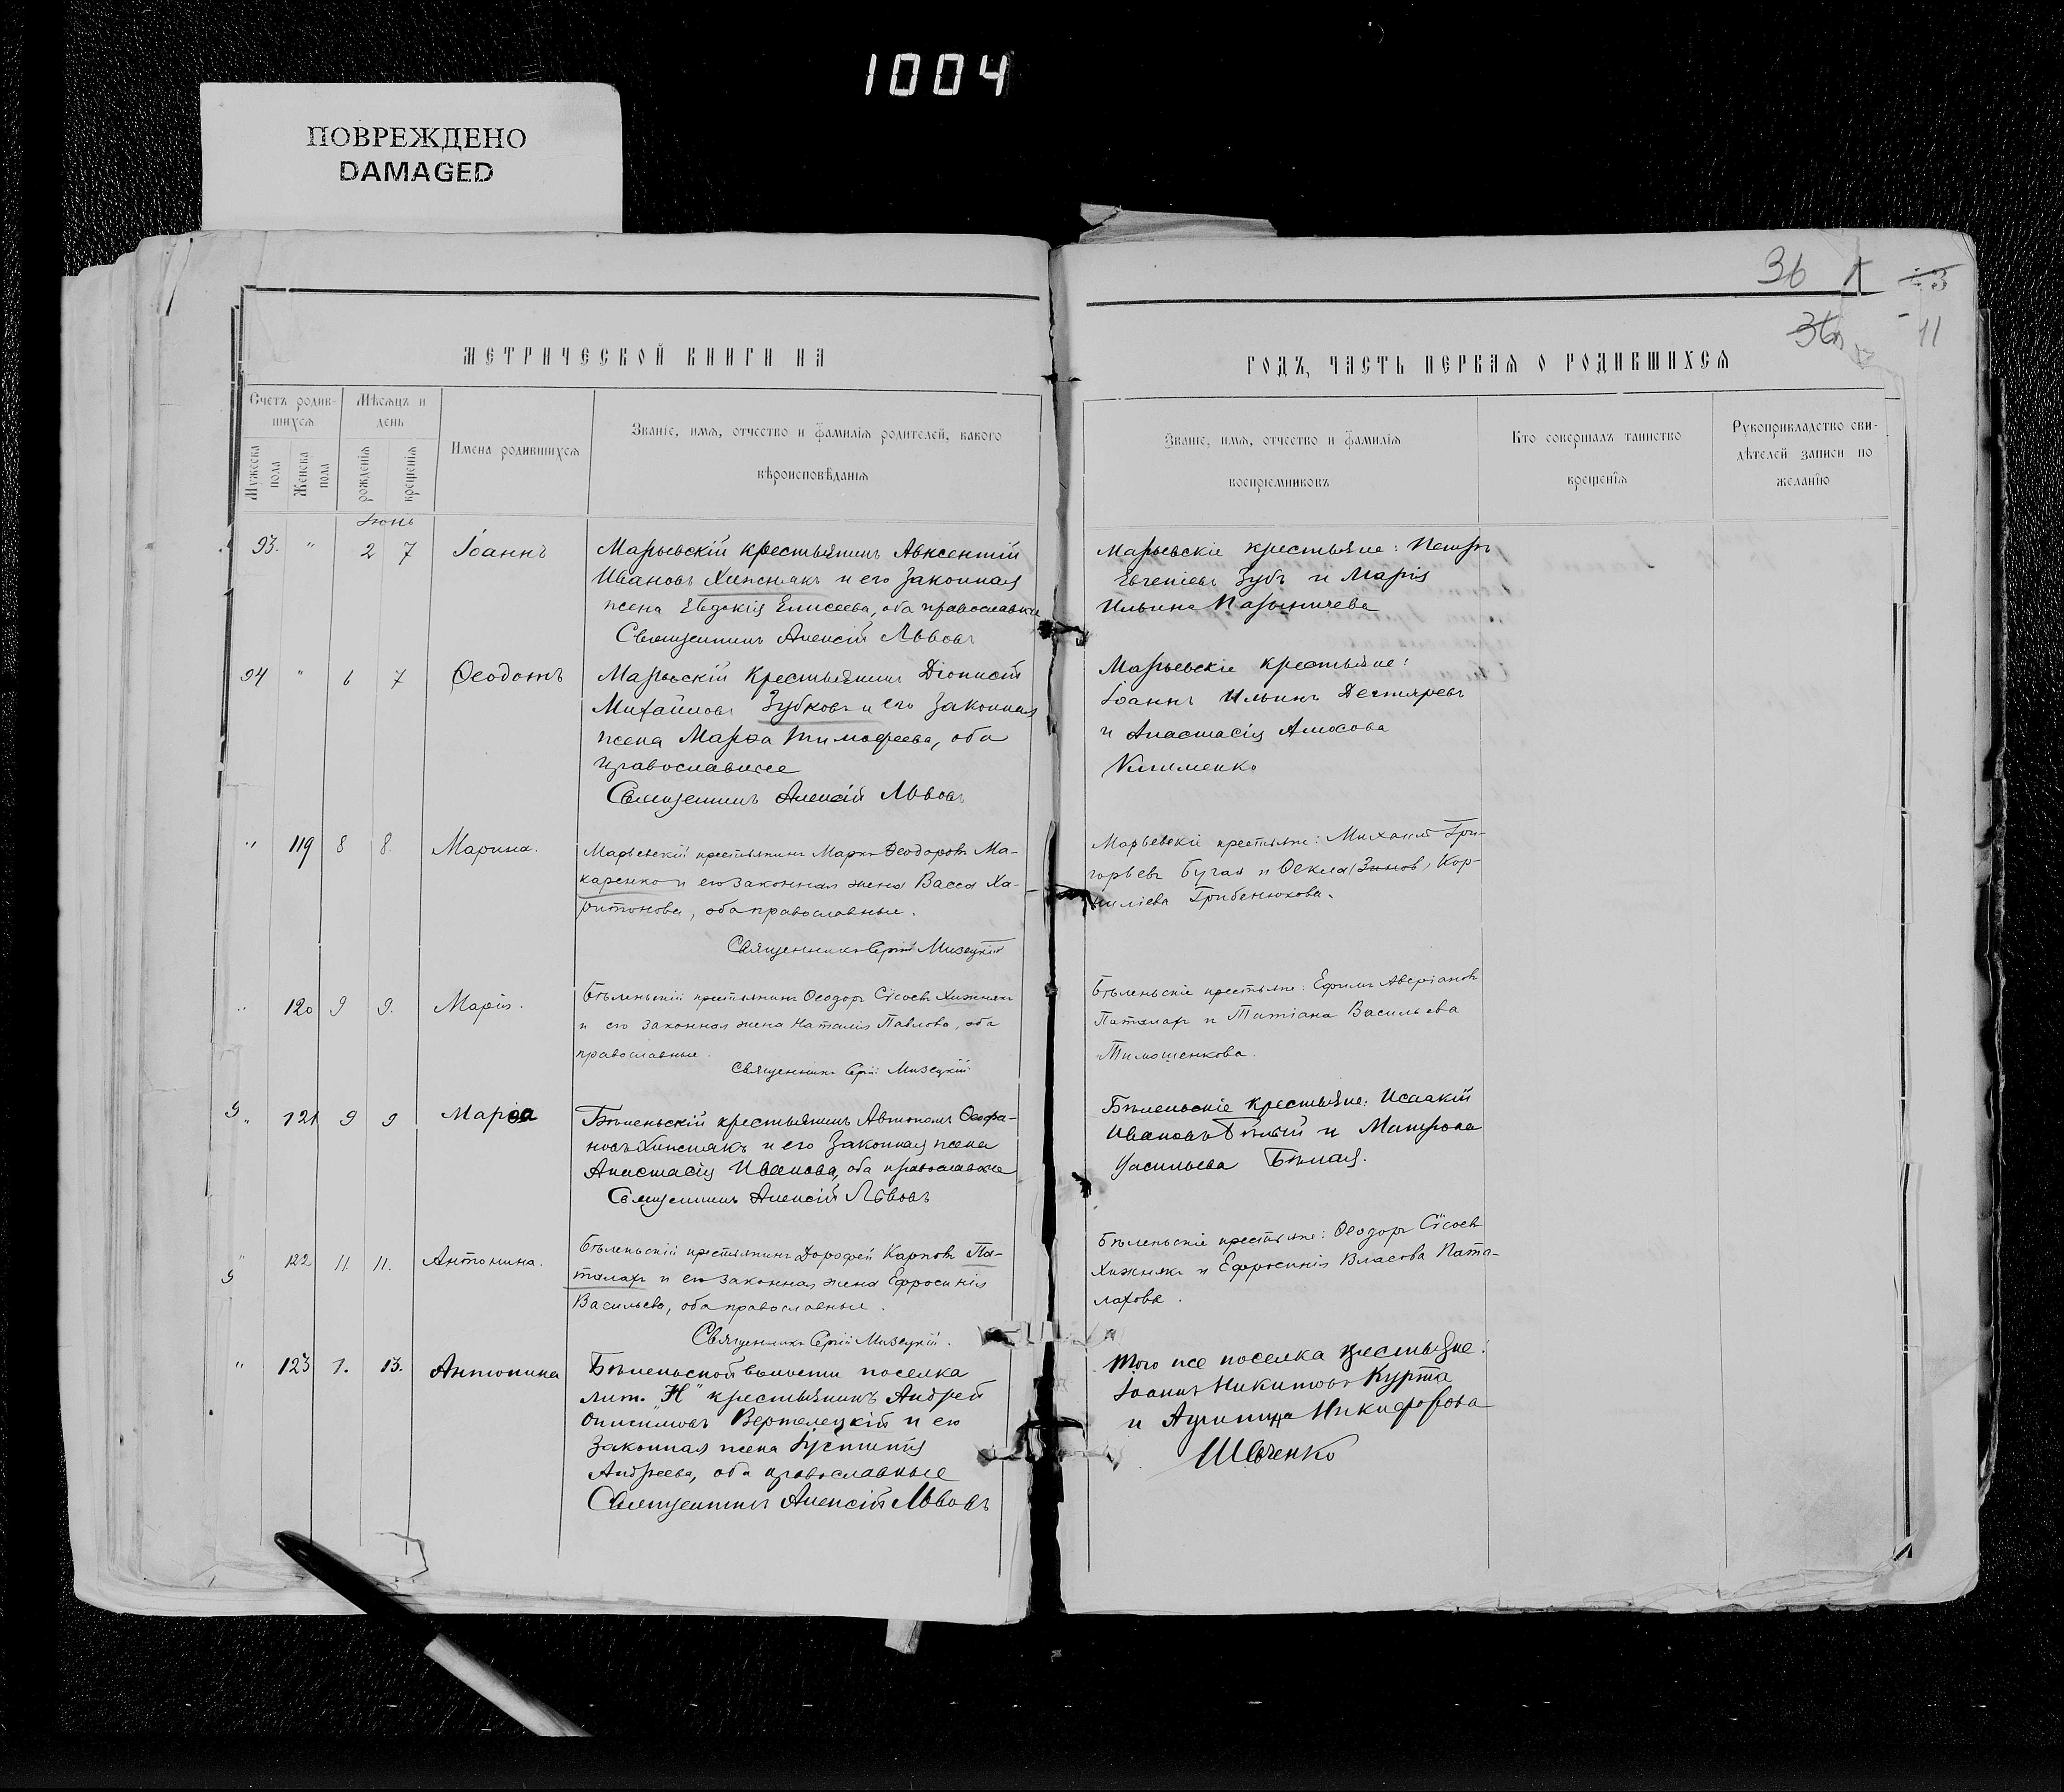 1004
ПОВРЕЖДЕНО
DAMAGED
36
11
МЕТРИЧЕСКОЙ КНИГИ НА
ГОДЪ, ЧАСТЬ ПЕРВАЯ О РОДИВШИХСЯ
Счетъ родив-
шихся
Мѣсяцъ и
день
Мужеска пола
Женска пола
рожденія
крещенія
Имена родившихся
Званіе, имя, отчество и фамилія родителей, какого
вѣроисповѣданія
Званіе, имя, отчество и фамилія
воспріемниковъ
Кто совершалъ таинство
крещенія
Рукоприкладство сви-
дѣтелей записи по
желанію
Іюнь
93. " 2 7 Іоаннъ
Марьевскій крестьянинъ Авксентій
Ивановъ Хижнякъ и его законная
жена Евдокія Елисеева, оба православные
Священникъ Алексій Львовъ
Марьевскіе крестьяне: Петръ
Евгеніевъ Зубъ и Марія
Ильина
94 " 6 7 Ѳеодотъ
Марьевскій крестьянинъ Діонисій
Михайловъ Зубковъ и его законная
жена Марѳа Тимофеева, оба
православные
Священникъ Алексій Львовъ
Марьевскіе крестьяне:
Іоаннъ Ильинъ Дегтяревъ
и Анастасія Амосова
Клименко
" 119 8 8. Марина.
Марьевскій крестьянинъ Маркъ Ѳеодоровъ Ма-
каренко и его законная жена Васса Ха-
ритонова, оба православные.
Священникъ Сергій Мизецкій
Марьевскіе крестьяне: Михаилъ Гри-
горьевъ Бугай и Ѳекла (Зинов) Кор-
ниліева Грибенюкова.
" 120 9 9. Марія.
Бѣленьскій крестьянинъ Ѳеодоръ Сісоевъ Хижнякъ
и его законная жена Наталія Павлова, оба
православные.
Священникъ Сергій Мизецкій
Бѣленьскіе крестьяне: Ефимъ Аверіановъ
Паталахъ и Татіана Васильева
Тимошенкова.
" 121 9 9 Марѳа
Бѣленьскій крестьянинъ Автономъ Ѳеофа-
новъ Хижнякъ и его законная жена
Анастасія Иванова, оба православные
Священникъ Алексій Львовъ
Бѣленьскіе крестьяне: Исаакій
Ивановъ Бѣлый и Матрона
Васильева Бѣлая.
" 122 11. 11. Антонина.
Бѣленьскій крестьянинъ Дорофей Карповъ Па-
талахъ и его законная жена Ефросинія
Васильева, оба православные.
Священникъ Сергій Мизецкій.
Бѣленьскіе крестьяне: Ѳеодоръ Сісоевъ
Хижнякъ и Ефросинія Власова Пата-
лахова.
" 123 1. 13. Антонина
Бѣленьской волости поселка
лит. "Н" крестьянинъ Андрей
Онисимовъ Вертелецкій и его
законная жена Іустинія
Андреева, оба православные
Священникъ Алексій Львовъ
Того же поселка крестьяне:
Іоаннъ Никитовъ Курта
и Никифорова
Шевченко